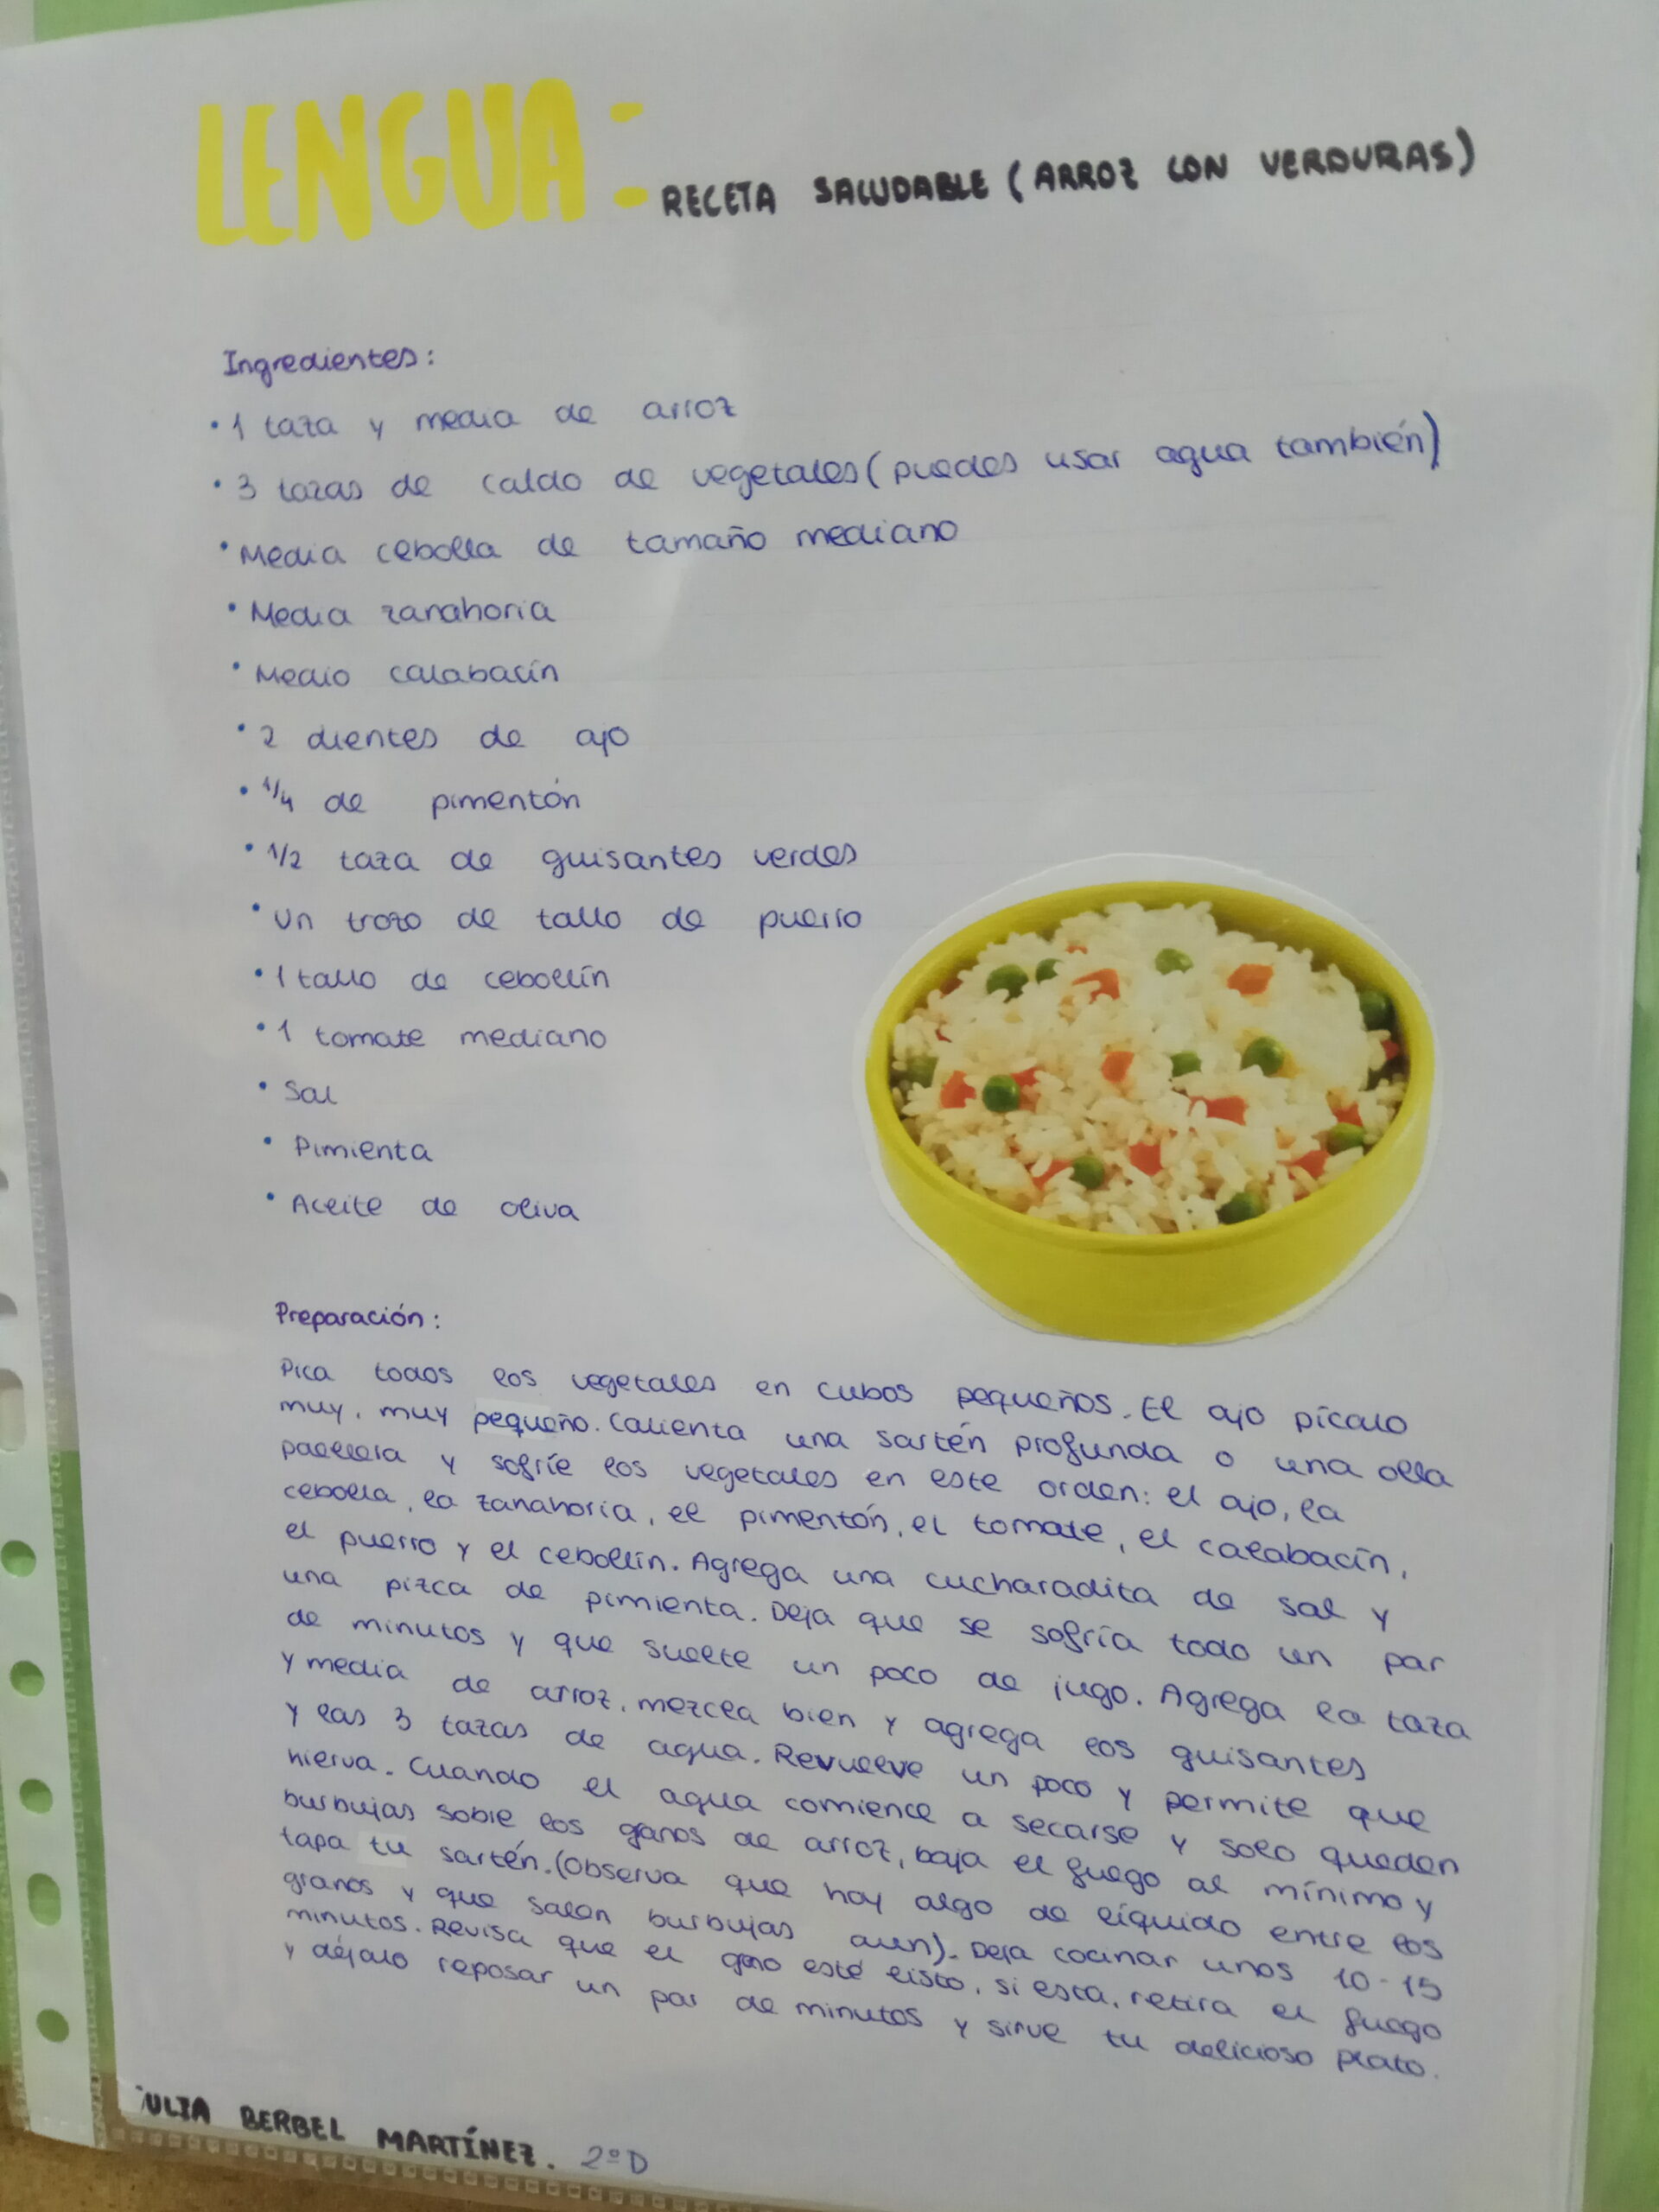 LENGUA: RECETA SALUDABLE (ARROZ CON VERDURAS)
Ingredientes:
• 1 taza y media de arroz
• 3 tazas de caldo de vegetales (puedes usar agua también)
• Media cebolla de tamaño mediano
• Media zanahoria
• Medio calabacín
• 2 dientes de ajo
• 1/4 de pimentón
• 1/2 taza de guisantes verdes
• Un trozo de tallo de puerro
• 1 tallo de cebollín
• 1 tomate mediano
• Sal
• Pimienta
• Aceite de oliva
Preparación:
Pica todos los vegetales en cubos pequeños. El ajo pícalo
muy, muy pequeño. Calienta una sartén profunda o una olla
paellera y sofríe los vegetales en este orden: el ajo, la
cebolla, la zanahoria, el pimentón, el tomate, el calabacín,
el puerro y el cebollín. Agrega una cucharadita de sal y
una pizca de pimienta. Deja que se sofría todo un par
de minutos y que suelte un poco de jugo. Agrega la taza
y media de arroz, mezcla bien y agrega los guisantes
y las 3 tazas de agua. Revuelve un poco y permite que
hierva. Cuando el agua comience a secarse y solo queden
burbujas sobre los granos de arroz, baja el fuego al mínimo y
tapa tu sartén. (Observa que hay algo de líquido entre los
granos y que salen burbujas aun). Deja cocinar unos 10-15
minutos. Revisa que el grano esté listo, si esta, retira el fuego
y déjalo reposar un par de minutos y sirve tu delicioso plato.
JULIA BERBEL MARTÍNEZ. 2ºD